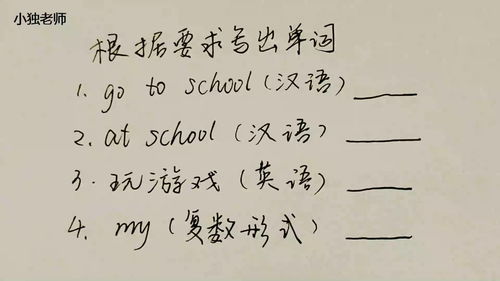 小独老师
根据要求写出单词
1. go to school (汉语) ____
2. at school (汉语) ____
3. 玩游戏 (英语) ____
4. my (复数形式) ____